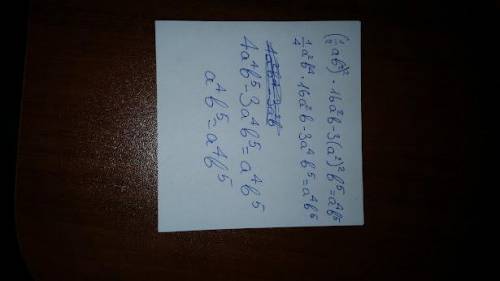 (½ab²)² · 16a²b - 3(a²)²b⁵ = a⁴b⁵
¼a²b⁴ · 16a²b - 3a⁴b⁵ = a⁴b⁵
4a⁴b⁵ - 3a⁴b⁵ = a⁴b⁵
a⁴b⁵ = a⁴b⁵